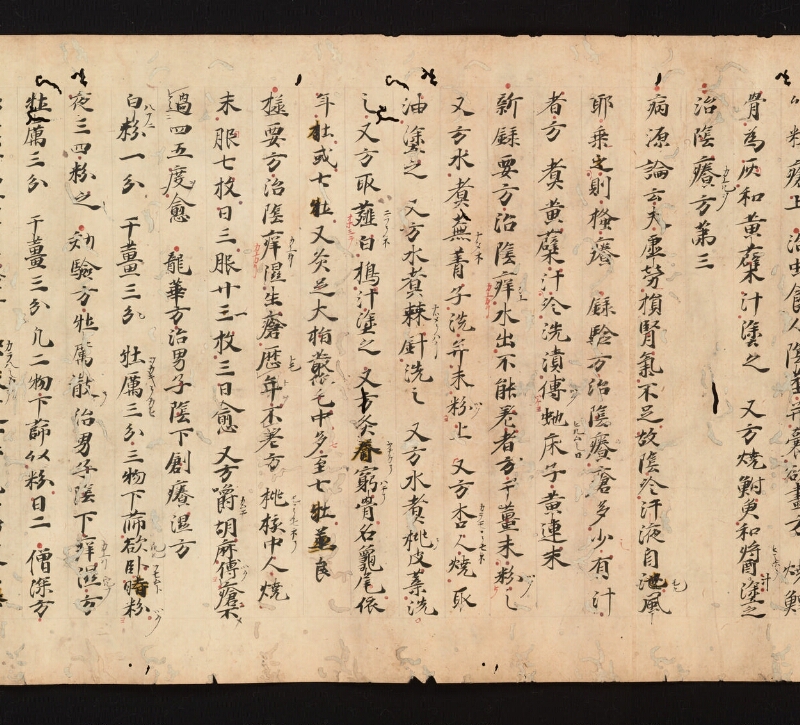 治虫食人陰莖并囊欲盡方 燒
骨為灰和黃蘗汁塗之 又方燒鮒魚和醬塗之
治陰癢方第三
病源論云夫虛勞損腎氣不足故陰冷汗液自泄風
耶乘之則搔癢 錄驗方治陰癢瘡多少有汁
者方 煮黃蘗汁冷洗漬傅虵床子黃連末
新錄要方治陰痒水出不能差者方干薑末粉之
又方水煮蕪菁子洗并末粉上 又方杏人燒取
油塗之 又方水煮棘針洗之 又方水煮桃皮葉洗
之又方取薤白搗汁塗之 又方灸脊窮骨名龜尾依
年壯或七壯又灸足大指叢毛中多至七壯並良
極要方治陰痒濕生瘡歷年不差方 桃核中人燒
末服七枚日三服廿一枚三日愈 又方嚼胡麻傅瘡不
過四五度愈 龍華方治男子陰下創癢濕方
白粉一分 干薑三分 牡厲三分三物下篩欲卧時粉
夜三四粉之 効驗方牡厲散治男子陰下痒濕方
牡厲三分 干薑三分 凡二物下篩以粉日二 僧深方